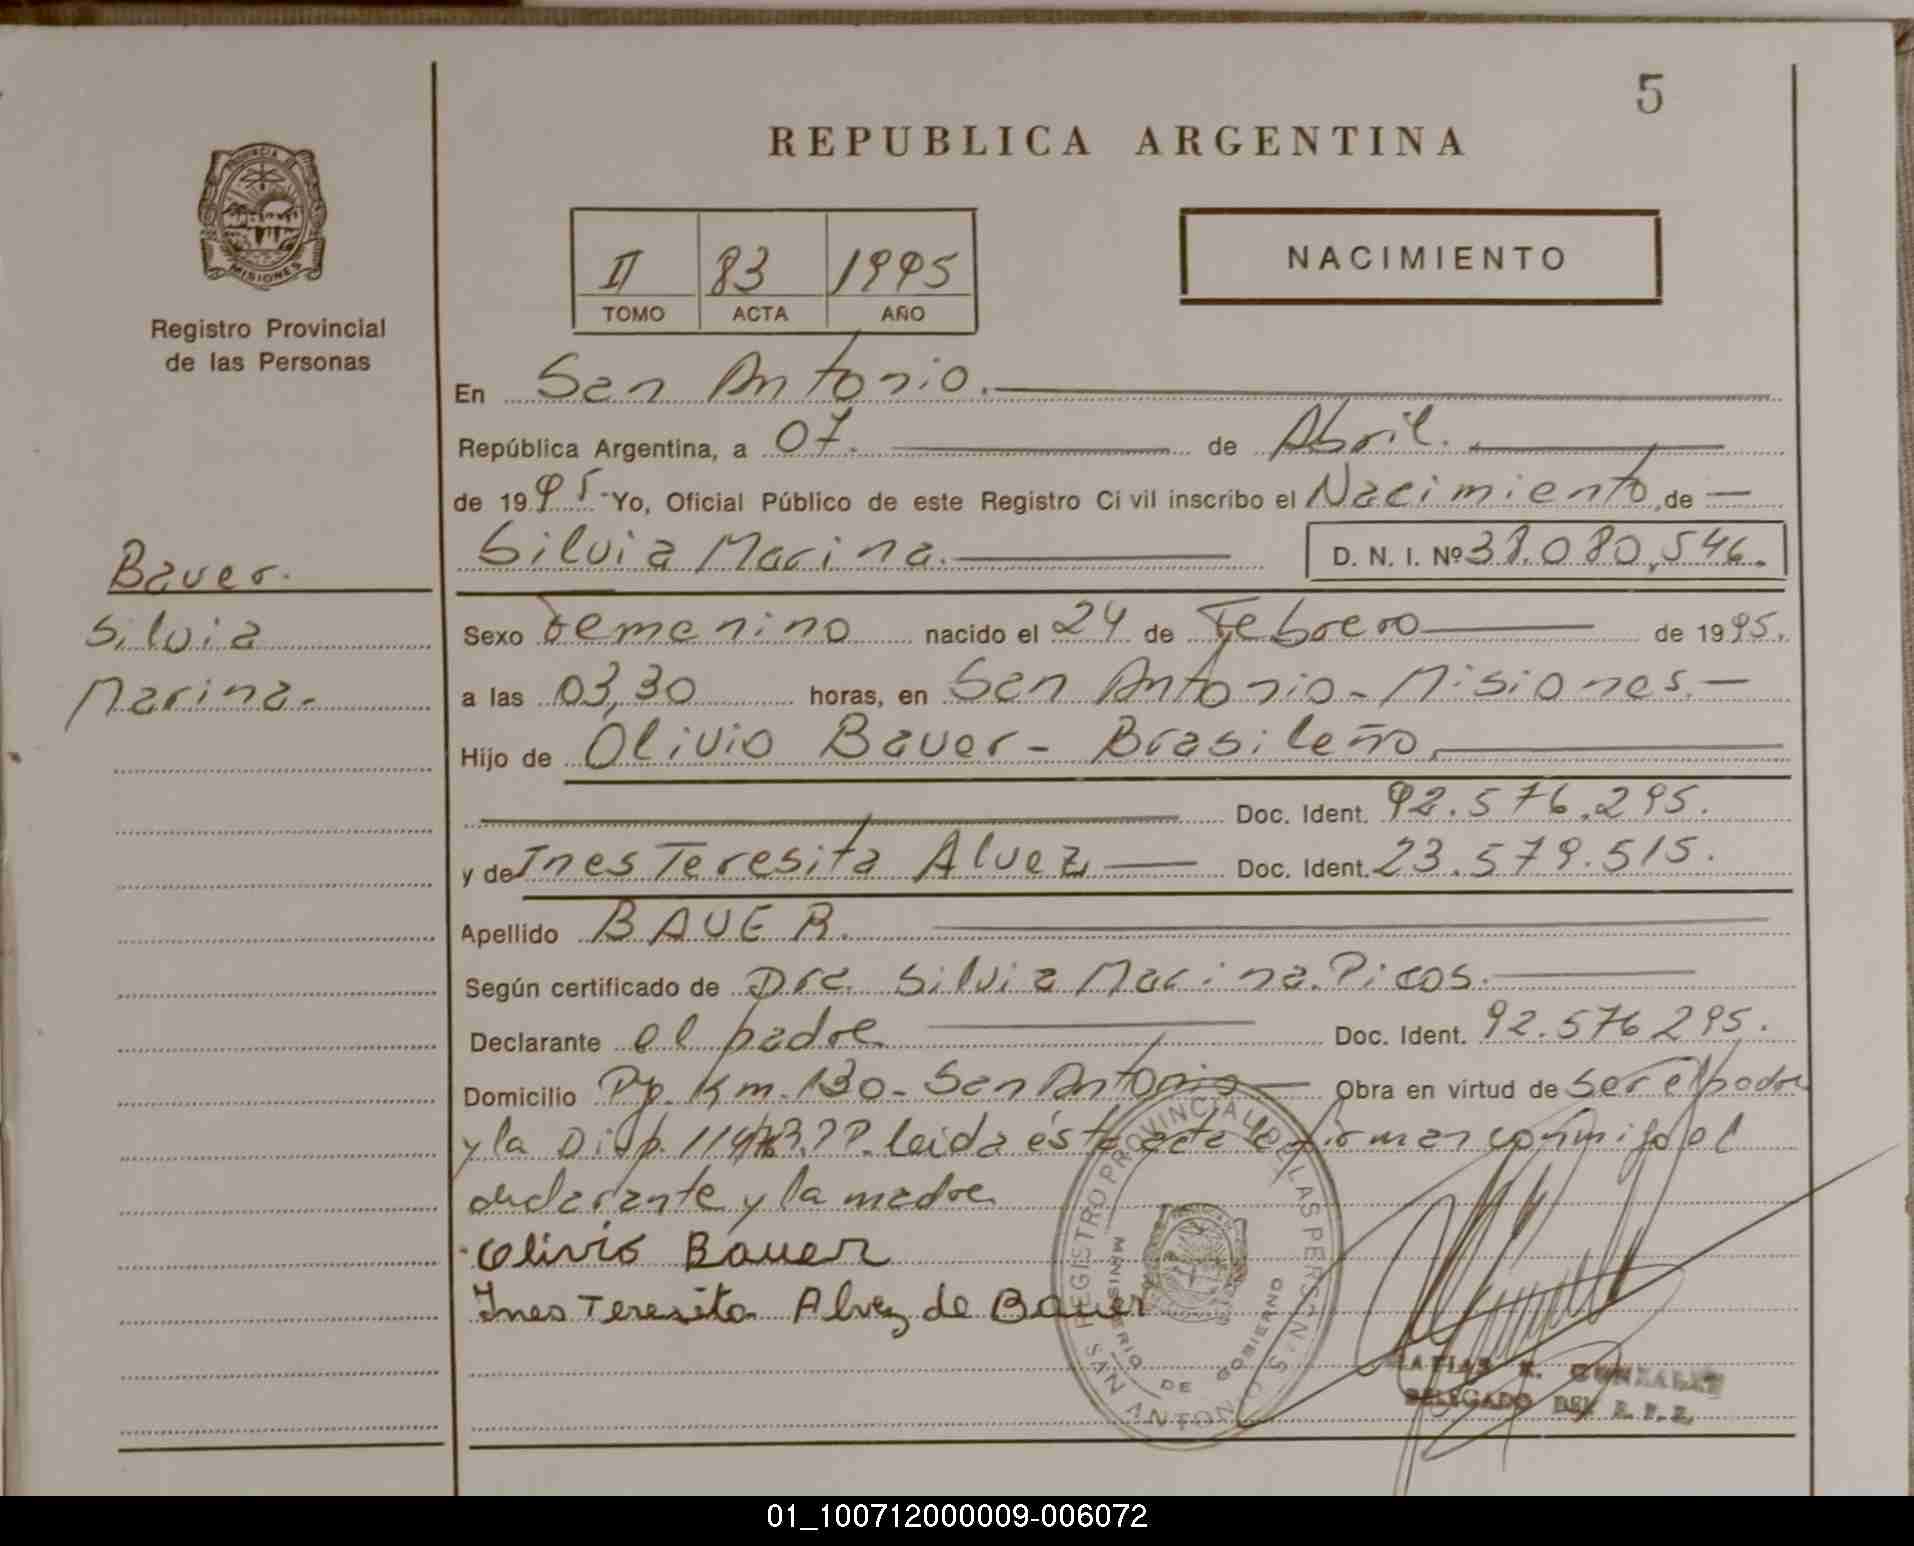 5
REPUBLICA ARGENTINA
PROVINCIA DE
MISIONES
Registro Provincial
de las Personas
II 83 1995
TOMO ACTA AÑO
NACIMIENTO
En San Antonio.
República Argentina, a 07. de Abril.
de 1995 - Yo, Oficial Público de este Registro Civil inscribo el Nacimiento, de
Silvia Marina. D. N. I. Nº 38.080.546.
Bauer.
Silvia
Marina.
Sexo Femenino nacido el 24 de Febrero de 1995.
a las 03,30 horas, en San Antonio - Misiones.
Hijo de Olivio Bauer - Brasileño.
Doc. Ident. 92.576.295.
y de Ines Teresita Alvez Doc. Ident. 23.579.515.
Apellido BAUER.
Según certificado de Dra. Silvia Marina Picos.
Declarante el padre Doc. Ident. 92.576 295.
Domicilio Pp. Km. 130 - San Antonio Obra en virtud de ser el padre
y la Disp. leida ésta acta la firman conmigo el
declarante y la madre
Olivio Bauer
Ines Teresita Alvez de Bauer
REGISTRO PROVINCIAL DE LAS PERSONAS
MINISTERIO DE GOBIERNO
SAN ANTONIO
GONZALEZ
DELEGADO DEL
01_100712000009-006072